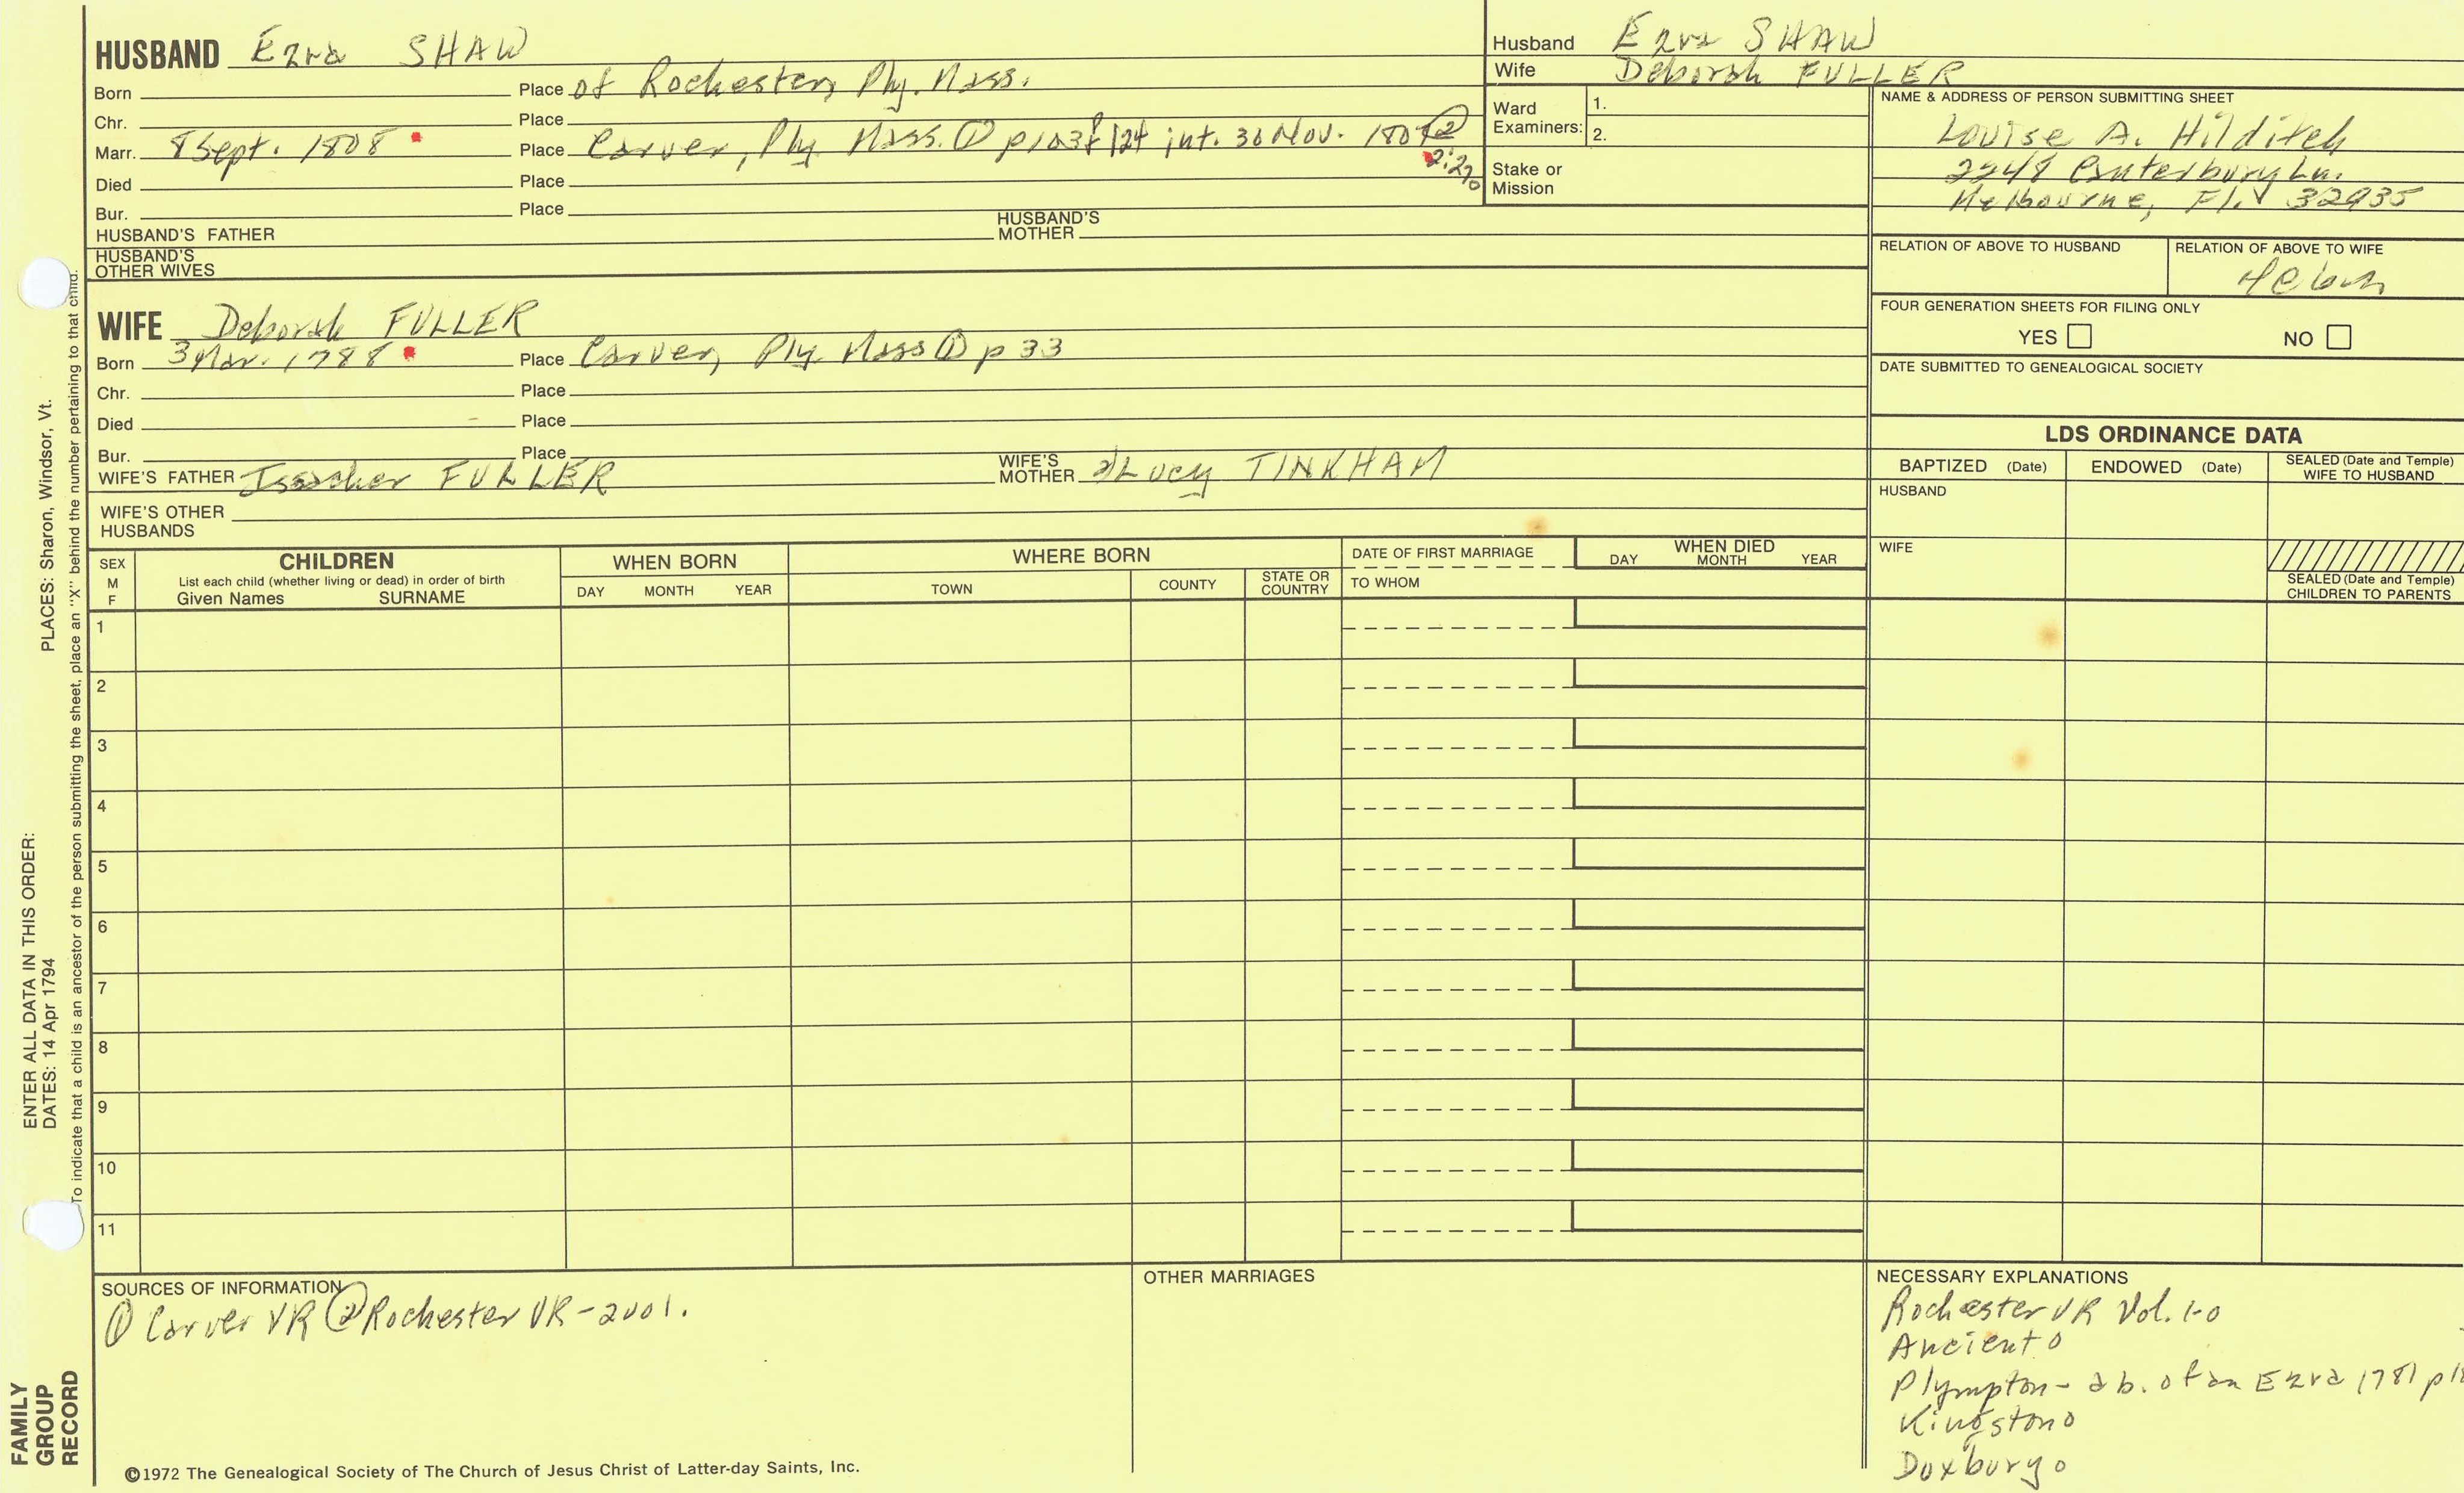 HUSBAND Ezra SHAW
Born Place of Rochester, Ply. Mass.
Chr. Place
Marr. 8 Sept. 1808 Place Carver, Ply. Mass. ① p103 & 124 int. 30 Nov. ②
2:270
Died Place
Bur. Place
HUSBAND'S FATHER HUSBAND'S MOTHER
HUSBAND'S OTHER WIVES
WIFE Deborah FULLER
Born 3 Mar. 1788 Place Carver, Ply. Mass ① p 33
Chr. Place
Died Place
Bur. Place
WIFE'S FATHER Issacher FULLER WIFE'S MOTHER Lucy TINKHAM
WIFE'S OTHER HUSBANDS
Husband Ezra SHAW
Wife Deborah FULLER
Ward Examiners: 1.
2.
Stake or Mission
NAME & ADDRESS OF PERSON SUBMITTING SHEET
Louise A. Hilditch
2248 Canterbury Ln.
Melbourne, Fl. 32935
RELATION OF ABOVE TO HUSBAND RELATION OF ABOVE TO WIFE
FOUR GENERATION SHEETS FOR FILING ONLY
YES NO
DATE SUBMITTED TO GENEALOGICAL SOCIETY
LDS ORDINANCE DATA
BAPTIZED (Date) ENDOWED (Date) SEALED (Date and Temple) WIFE TO HUSBAND
HUSBAND
WIFE
SEALED (Date and Temple) CHILDREN TO PARENTS
SEX M F
CHILDREN
List each child (whether living or dead) in order of birth
Given Names SURNAME
WHEN BORN
DAY MONTH YEAR
WHERE BORN
TOWN COUNTY STATE OR COUNTRY
DATE OF FIRST MARRIAGE
TO WHOM
WHEN DIED
DAY MONTH YEAR
1
2
3
4
5
6
7
8
9
10
11
SOURCES OF INFORMATION
① Carver VR ② Rochester VR - 2001.
OTHER MARRIAGES
NECESSARY EXPLANATIONS
Rochester VR Vol. 1-0
Ancient 0
Plympton - a b. of an Ezra 1781
Kingston 0
Duxbury 0
©1972 The Genealogical Society of The Church of Jesus Christ of Latter-day Saints, Inc.
FAMILY
GROUP
RECORD
ENTER ALL DATA IN THIS ORDER:
DATES: 14 Apr 1794 PLACES: Sharon, Windsor, Vt.
To indicate that a child is an ancestor of the person submitting the sheet, place an "X" behind the number pertaining to that child.